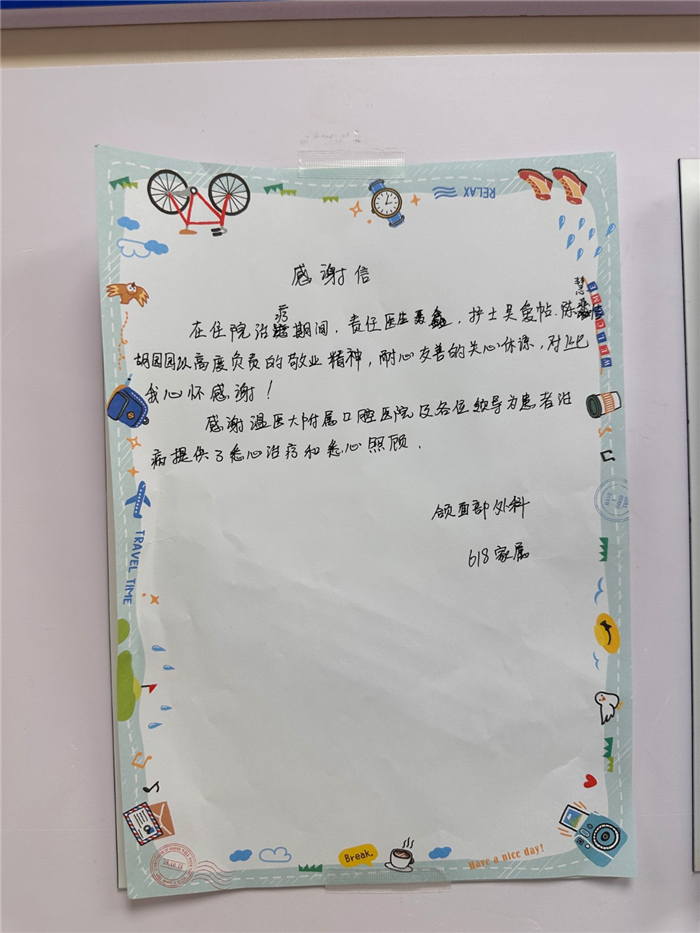 RELAX
感谢信
在住院治疗期间，责任医生聂鑫，护士吴爱帖.陈慧
胡园园以高度负责的敬业精神，耐心友善的关心体谅，对此
我心怀感谢！
感谢温医大附属口腔医院及各位领导为患者治
病提供了悉心治疗和悉心照顾.
颌面部外科
618家属
TRAVEL TIME
Break.
Have a nice day!